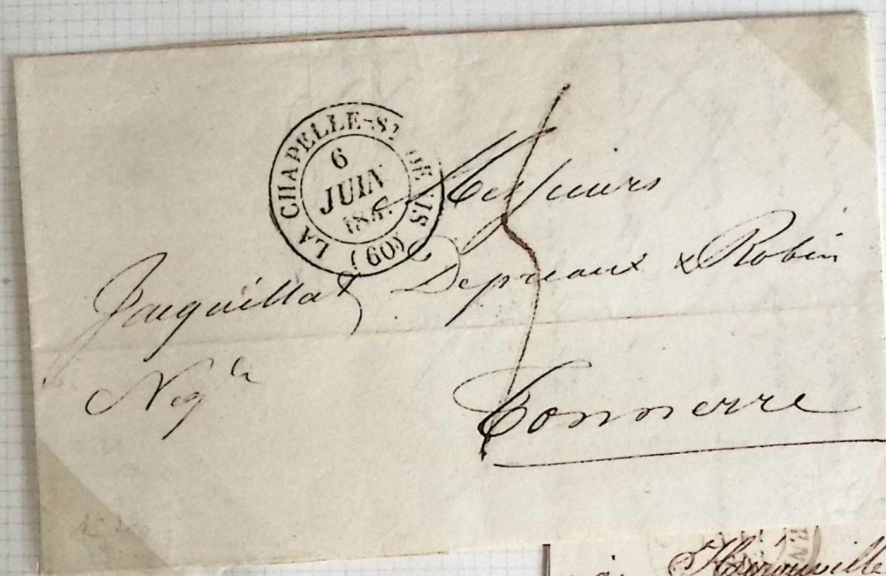 LA CHAPELLE-ST DENIS (60)
6
JUIN
Messieurs
Jacquillat, Depreaux & Robin
Negts
Tonnerre
à